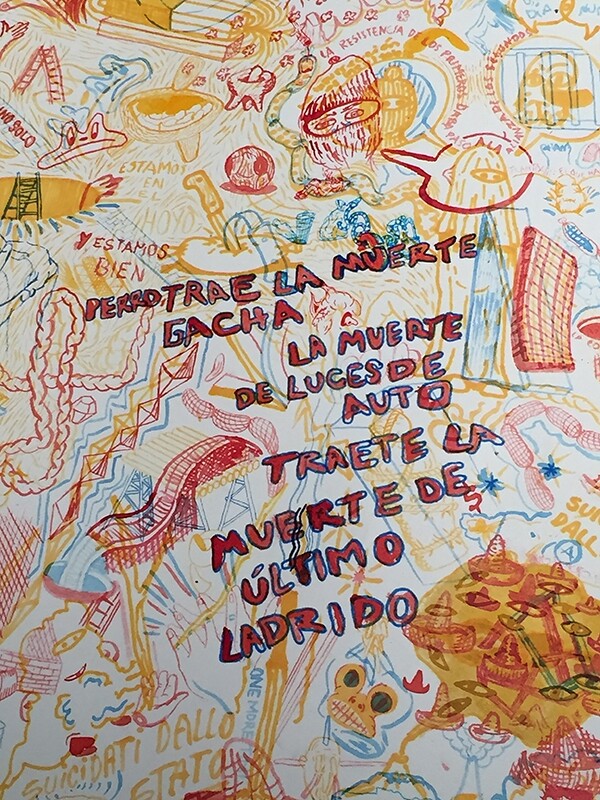 LA RESISTENCIA DE LOS
ESTAMOS
EN
EL
HOYO
Y ESTAMOS
BIEN
PERRO TRAE LA MUERTE
GACHA
LA MUERTE
DE LUCES DE
AUTO
TRAETE LA
MUERTE DE
ÚLTIMO
LADRIDO
ONE MORE
SUICIDATI DALLO
STATO
SUI
DALL